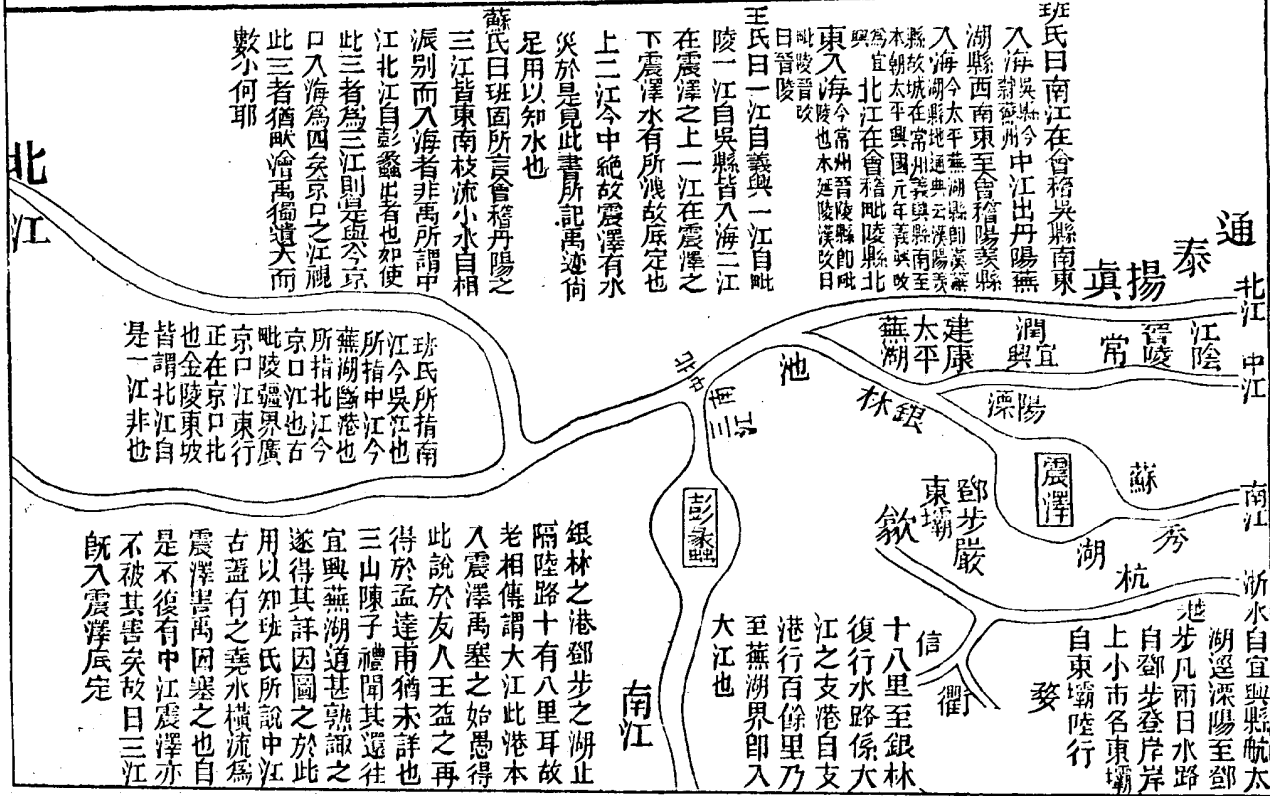 班氏曰南江在會稽吳縣南東
入海吳縣今隸蘇州中江出丹陽蕪
湖縣西南東至會稽陽羨縣
入海今太平蕪湖縣即漢蕪
湖縣地通典云漢陽羨
縣故城在常州義興縣南至
本朝太平興國元年義興改
為宜興北江在會稽毗陵縣北
東入海今常州晉陵縣即毗
陵也本延陵漢改曰
毗陵晉改
曰晉陵
王氏曰一江自義興一江自毗
陵一江自吳縣皆入海二江
在震澤之上一江在震澤之
下震澤水有所洩故底定也
上二江今中絶故震澤有水
災於是覓此書所記禹迹尚
足用以知水也
蘇氏曰班固所言會稽丹陽之
三江皆東南枝流小水自相
派别而入海者非禹所謂中
江北江自彭蠡出者也如使
此三者為三江則是與今京
口入海為四矣京口之江視
此三者猶畎澮禹獨遺大而
數小何耶
通
泰
揚
真
北江
中江
南江
浙水
江陰
晉陵
常
宜興
潤
建康
太平
蕪湖
池
銀林
溧陽
震澤
蘇
秀
湖
杭
越
鄧步嚴
東壩
歙
信
衢
婺
北中
南江三
彭蠡
北江
南江
班氏所指南
江今吳江也
所指中江今
蕪湖斷港也
所指北江今
京口江也古
毗陵疆界廣
京口江東行
正在京口北
也金陵東坡
皆謂北江自
是一江非也
自宜興縣航太
湖逕溧陽至鄧
步凡兩日水路
自鄧步登岸岸
上小市名東壩
自東壩陸行
十八里至銀林
復行水路係大
江之支港自支
港行百餘里乃
至蕪湖界即入
大江也
銀林之港鄧步之湖止
隔陸路十有八里耳故
老相傳謂大江此港本
入震澤禹塞之始愚得
此說於友人王益之再
得於孟達甫猶未詳也
三山陳子禮聞其還往
宜興蕪湖道甚熟諏之
遂得其詳因圖之於此
用以知班氏所說中江
古蓋有之堯水橫流為
震澤害禹因塞之也自
是不復有中江震澤亦
不被其害矣故曰三江
既入震澤底定